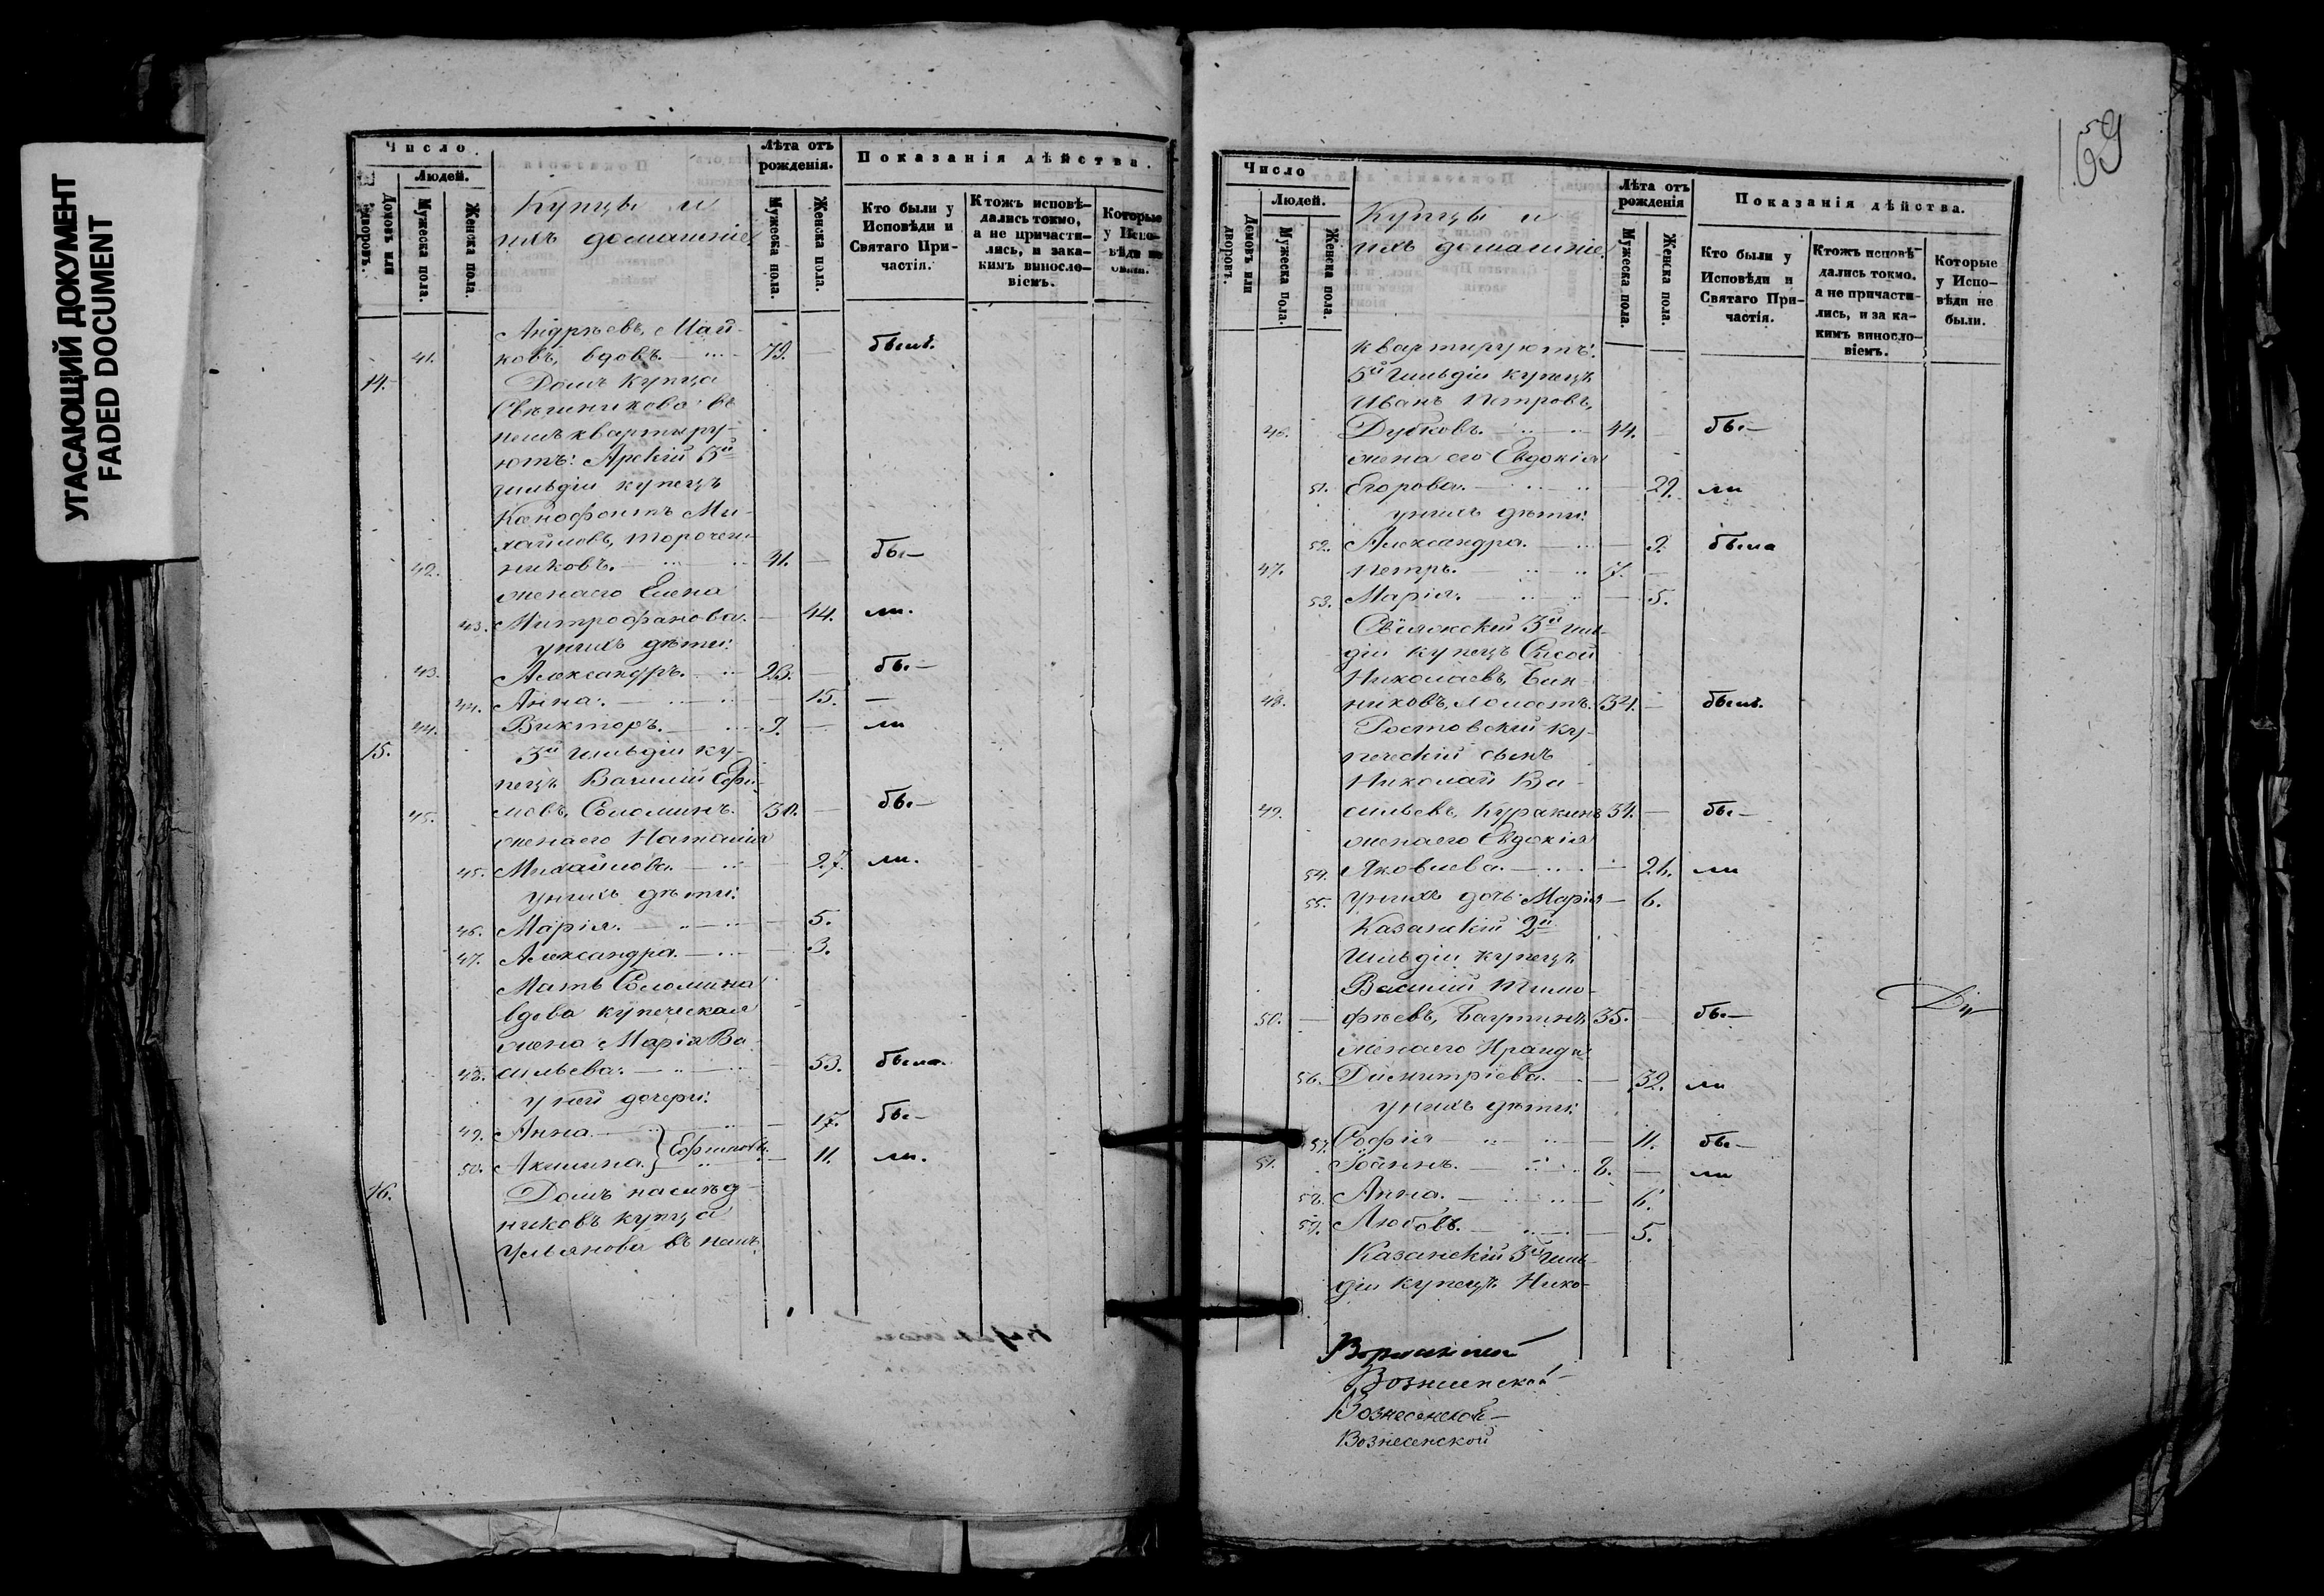 УГАСАЮЩИЙ ДОКУМЕНТ
FADED DOCUMENT
Число.
Людей.
Домовъ или дворовъ.
Мужеска пола.
Женска пола.
Купцы и
ихъ домашніе.
Лѣта отъ рожденія.
Мужеска пола.
Женска пола.
Показанія дѣйства.
Кто были у Исповѣди и Святаго Причастія.
Ктожъ исповѣдались токмо, а не причастились, и за какимъ винословіемъ.
Которые у Исповѣди не были.
Андреевъ, Май-
41. ковъ, вдовъ. 79. — былъ.
14. Домъ купца
Свешникова въ
немъ квартиру-
ютъ: Арскій 3й
гильдіи купецъ
Ксенофонтъ Ми-
хайловъ, Торочеш-
42. никовъ. 41. — бы—
жена его Елена
43. Митрофанова. — 44. ли.
у нихъ дѣти:
43. Александръ. 23. — бы—
44. Анна. — 15. —
44. Викторъ. 9. — ли
15. 3й гильдіи ку-
пецъ Василій Ефи-
45. мовъ, Соломинъ. 30. — бы—
жена его Наталія
45. Михайлова. — 27. ли.
у нихъ дѣти:
46. Марія. — 5.
47. Александра. — 3.
Мать Соломина
вдова купеческая
жена Марія Ва-
48. сильева. — 53. была.
у ней дочери:
49. Анна — 17. бы—
50. Акилина. } Ефимовы. — 11. ли.
16. Домъ наслѣд-
никовъ купца
Ульянова въ немъ
69
Число
Людей.
Домовъ или дворовъ.
Мужеска пола.
Женска пола.
Купцы и
ихъ домашніе.
Лѣта отъ рожденія
Мужеска пола.
Женска пола.
Показанія дѣйства.
Кто были у Исповѣди и Святаго Причастія.
Ктожъ исповѣдались токмо, а не причастились, и за какимъ винословіемъ.
Которые у Исповѣди не были.
квартируютъ:
3й гильдіи купецъ
Иванъ Петровъ,
46. Дубковъ. 44. — бы—
жена его Евдокія
51. Егорова. — 29. ли
у нихъ дѣти:
52. Александра. — 9. была
47. Петръ. 7. —
53. Марія. — 5.
Свіяжскій 3й гиль-
діи купецъ Сысой
Николаевъ, Бан-
48. никовъ, холостъ. 34. — былъ.
Ростовскій ку-
печескій сынъ
Николай Ва-
49. сильевъ, Куракинъ 34. — бы—
жена его Евдокія
54. Яковлева. — 26. ли
55. у нихъ дочь Марія — 6.
Казанскій 2й
гильдіи купецъ
Василій Тимо-
50. фѣевъ, 35. — бы—
жена его
56. Димитріева. — 32. ли
у нихъ дѣти:
57. Софія — 11. бы—
51. Іоаннъ. 8. — ли
58. Анна. — 6.
59. Любовь. — 5.
Казанскій 3й гиль-
діи купецъ Нико-
Вознесенской
Вознесенской—
Вознесенской